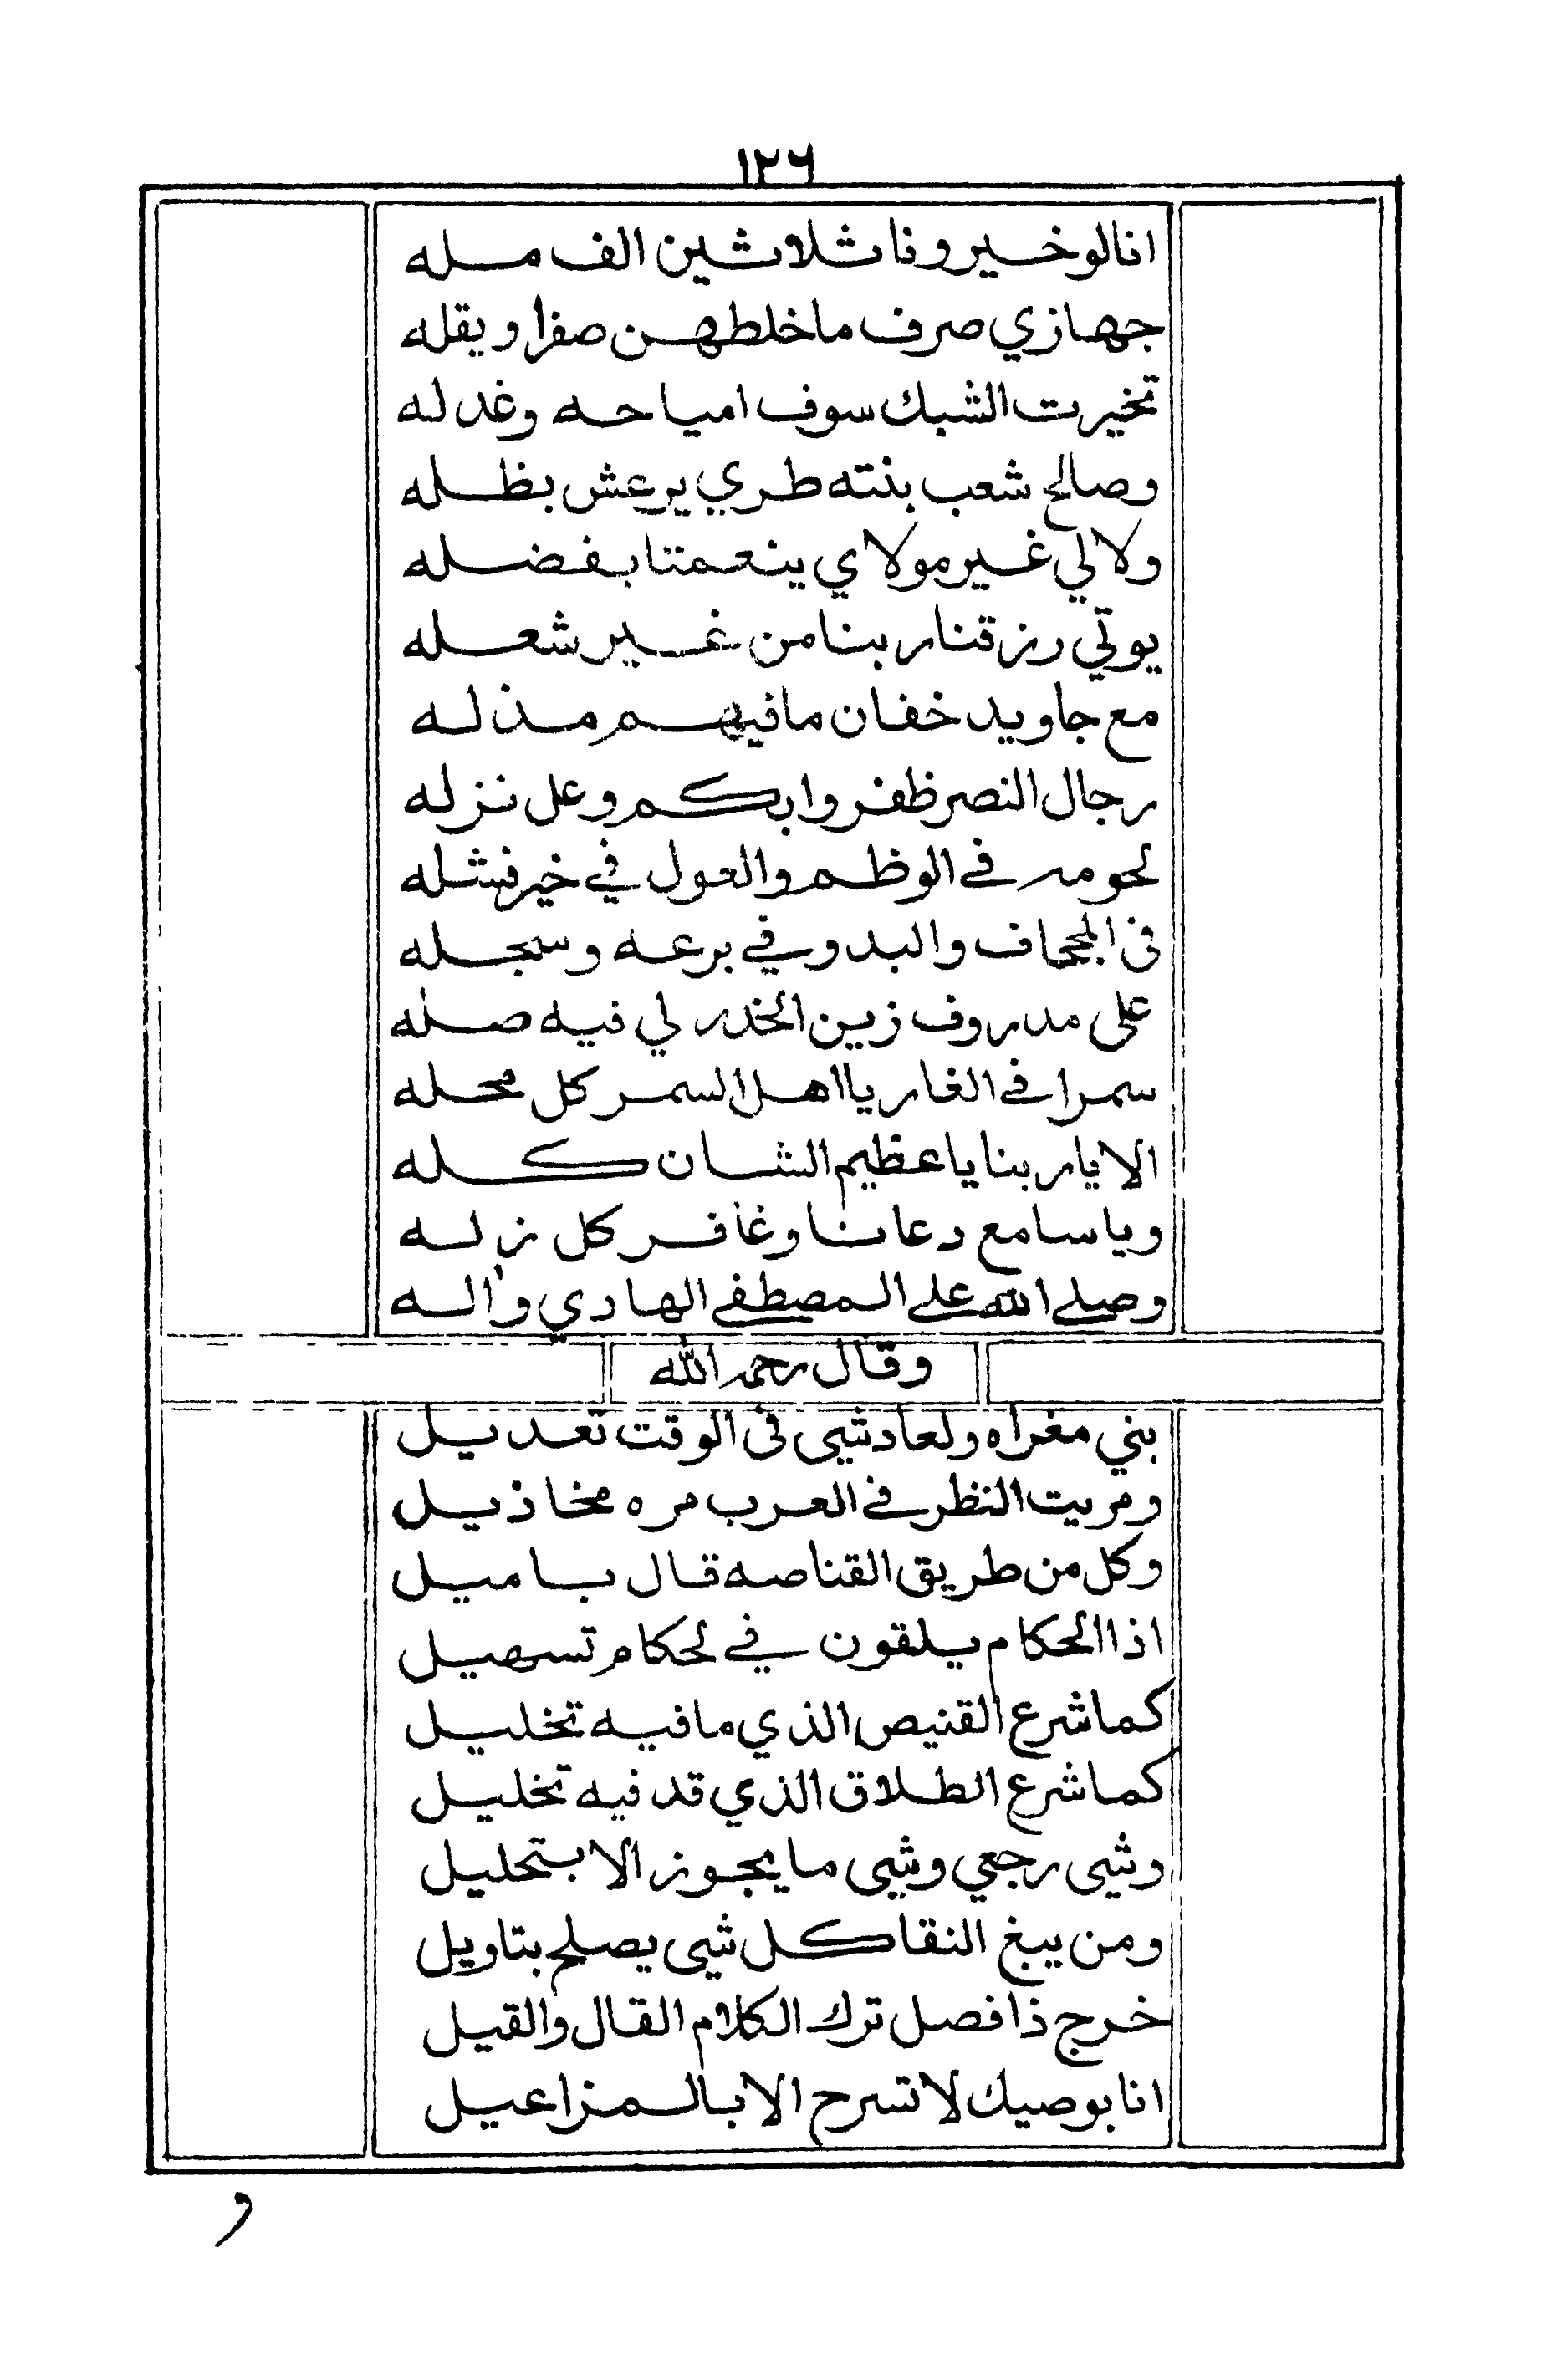 ١٢٦
انا لو خيرونا ثلاثين الف مله
جهازي صرف ما خلطهن صفرا ويقله
تخيرت الشبك سوف امياحه وغدله
وصالح شعب بنته طري يرعش بظله
ولا لي غير مولاي ينعمتنا بفضله
يوتي رزقنا ربنا من غير شعله
مع جاويد خفان ما فيهم مذله
رجال النصر ظفروا بكم وعل نزله
لحومه في الوظم والعول في خير فشله
في الججاف والبدو في برعه وسجله
على مدروف زين الخدر لي فيه صله
سمرا في الغار يا اهل السمر كل محله
الا يا ربنا يا عظيم الشان كله
ويا سامع دعانا وغافر كل زله
وصلى الله على المصطفى الهادي واله
وقال رحمه الله
بني مغراه ولعاد شي في الوقت تعديل
ومريت النظر في العرب مره مخاذيل
وكل من طريق القناصه قال باميل
اذا الحكام يلقون في لحكام تسهيل
كما شرع القنيص الذي ما فيه تخليل
كما شرع الطلاق الذي قد فيه تخليل
وشي رجعي وشي ما يجوز الا بتحليل
ومن يبغ النقا كل شي يصلح بتاويل
خرج ذا فصل ترك الكلام القال والقيل
انا بوصيك لا تسرح الا بالمزاعيل
و